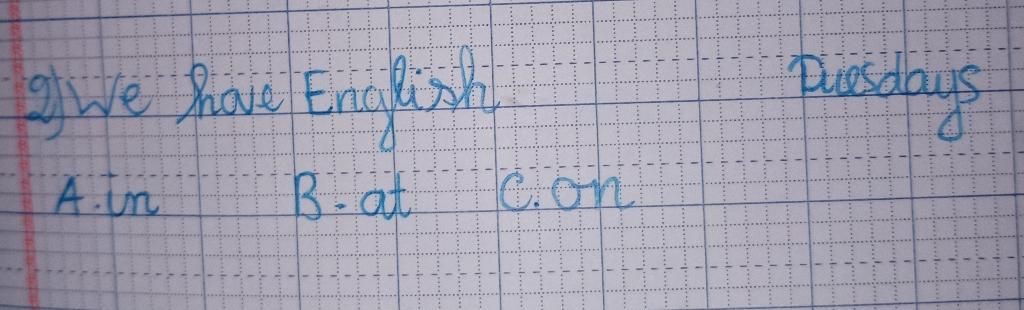 2) We have English Tuesdays
A. in B. at C. on